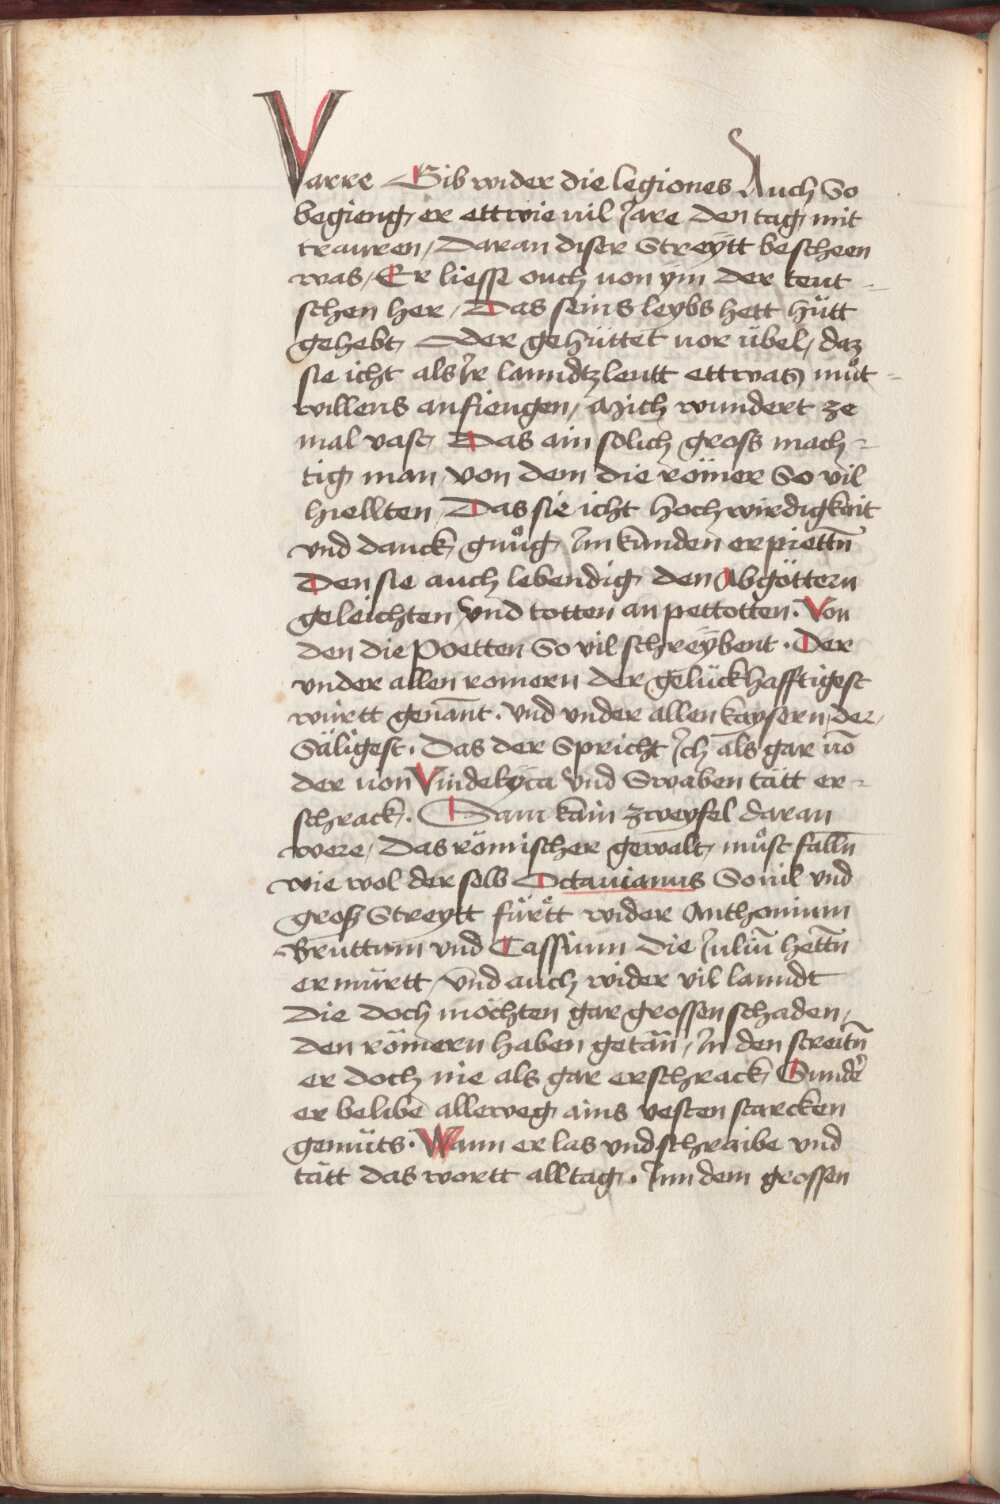 Varre Gib wider die legiones Auch So
begieng er ettwie uil Jare den tag mit
trauren / Daran diser Streÿtt bescheen
was / Er liesse ouch uon ÿm der teut-
schen her / Das seins leybs hett hütt
gehebt Oder gehüttet uor übel / daz
sie icht als Ir lanndtzleutt ettwas můt-
willens anfiengen / Mich wundert ze
mal vast Das ain solich gross mäch-
tig man von dem die römer So vil
hiellten Das sie icht hochwirdigkait
vnd danck gnůg Im kunden erpiettn̄
Den sie auch lebendig den Abgöttern
geleichten vnd totten an pettotten. Von
den die Poetten So vil schreÿbent. Der
vnder allen romern der gelückhafftigest
württ genānt. vnd vnder allen kaysern, der
Säligest. Das der Spricht Ich als gar uō
der uon Vindelÿca vnd Swaben tätt er-
schrack. Sam kain zweyfel daran
were / Das römischer gewalt můst falln̄
wie wol der selb Octauianus Souil vnd
gross Streytt fůrtt wider Anthonium
Bruttum vnd Cassium die Juliū hettn̄
ermürtt / vnd auch wider vil lanndt
Die doch möchten gar grossen schaden,
den römern haben getän / In den streitn̄
er doch nie als gar erschrack Sunder
er belibe allweg ains vesten starcken
gemüts. Wann er las vnd schraibe vnd
tätt das wortt alltag. Inn dem grossen